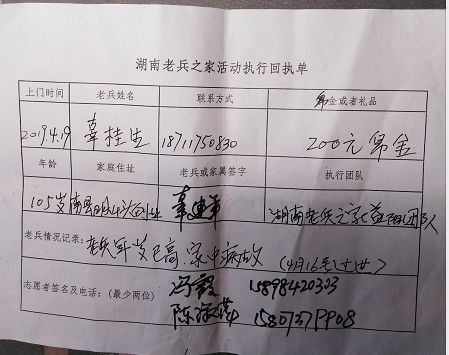 湖南老兵之家活动执行回执单
上门时间 老兵姓名 联系方式 帛金或者礼品
2019.4.19 辜桂生 18711750830 200元帛金
年龄 家庭住址 老兵或家属签字 执行团队
105岁 南县明山头 辜建军 湖南老兵之家益阳团队
老兵情况记录：老兵年岁已高.家中病故（4月16号过世）
志愿者签名及电话：（最少两位） 冯霞 15898420303
陈 15807379908